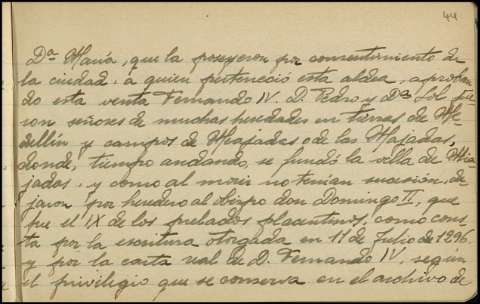 44
Dª María, que la poseyeron por consentimiento de
la ciudad, á quien perteneció esta aldea, aproban-
do esta venta Fernando IV. D. Pedro y Dª Sol fue-
ron señores de muchas heredades en tierras de Me-
dellín y campos de Miajadas o de las Majadas,
donde, tiempo andando, se fundó la villa de Mia-
jadas, y como al morir no tenían sucesión, de-
jaron por heredero al obispo don Domingo II, que
fue el IX de los prelados placentinos, como cons-
ta por la escritura otorgada en 11 de Julio de 1296
y por la carta real de D. Fernando IV, según
el privilegio que se conserva en el archivo de